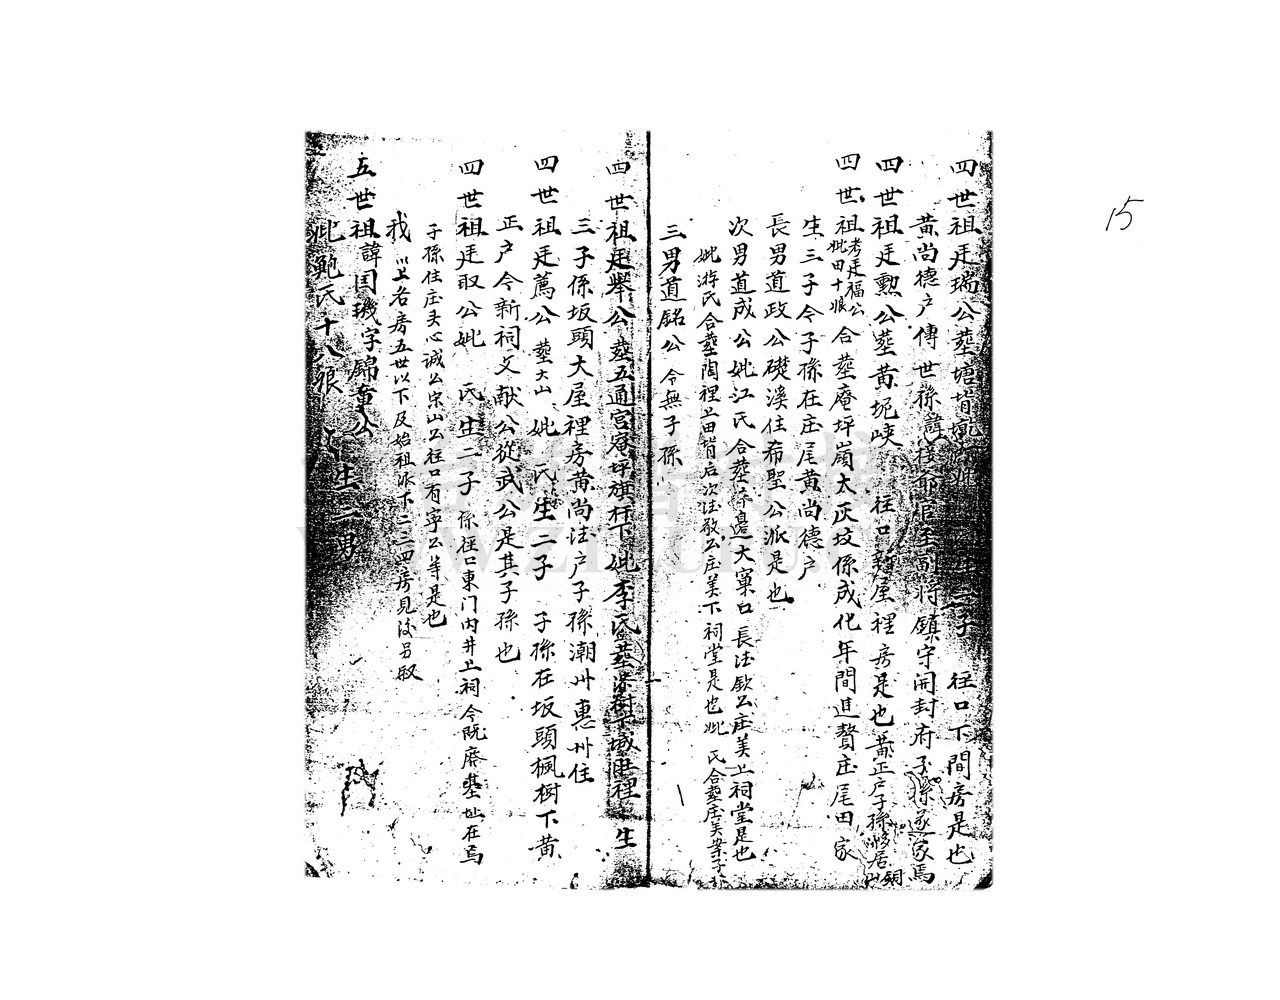 15
四世祖廷瑞公塟塘背壠 生三子 往口下間房是也
黃尚德户傳世孫諱 官至副將鎮守開封府子孫遂家焉
四世祖廷勲公塟黃 峽 往口新屋裡房是也黃正户子孫移居銅山
四世祖考廷福公妣田十娘合塟庵坪崗大灰坟係成化年間進贅庄尾田家
生三子今子孫在庄尾黃尚德户
長男道政公礎溪住希聖公派是也
次男道成公妣江氏合塟 邊大窠口長法欽公庄美上祠堂是也
妣游氏合塟陶裡上田背后次法敬公庄美下祠堂是也妣 氏合塟庄美業子
三男道銘公今無子孫
四世祖廷舉公塟五通宮庵坪旗杆下妣李氏塟 樹下城 裡 生
三子係坂頭大屋裡房黃尚法户子孫潮州惠州住
四世祖廷薦公塟大山 妣 氏生二子 子孫在坂頭楓樹下黃
正户今新祠文献公從武公是其子孫也
四世祖廷取公妣 氏生二子係往口東门内井上祠今既廢基址在焉
子孫住庄夫心誠公宋山公往口有寧公等是也
我 以上各房五世以下及始祖派下二三四房見後另叙
五世祖諱国璣字錦章公
妣鮑氏十八娘 生二男